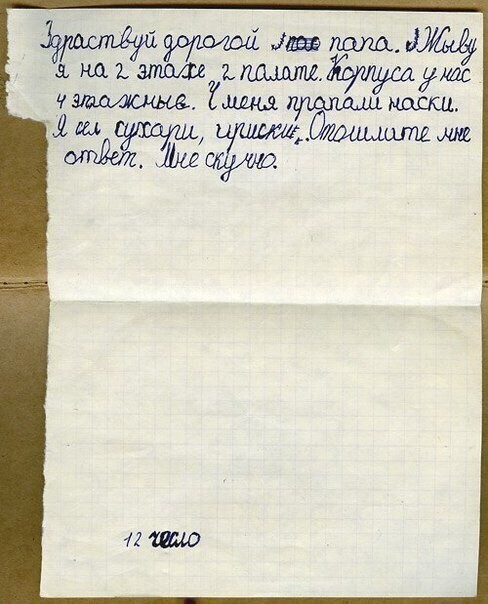 Здраствуй дорогой папа. Жыву
я на 2 этаже 2 палате. Корпуса у нас
4 этажные. У меня прапали наски.
Я сел сухари, ириски. Отошлате мне
ответ. Мне скучно.
12 чесло